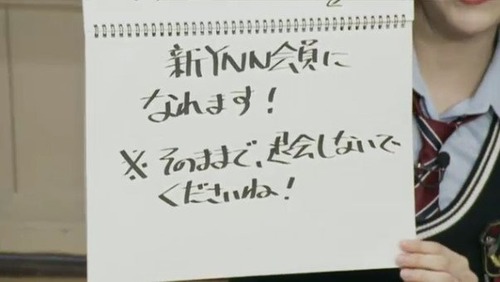 新YNN会員に
なれます!
※そのままで、退会しないで
くださいね!